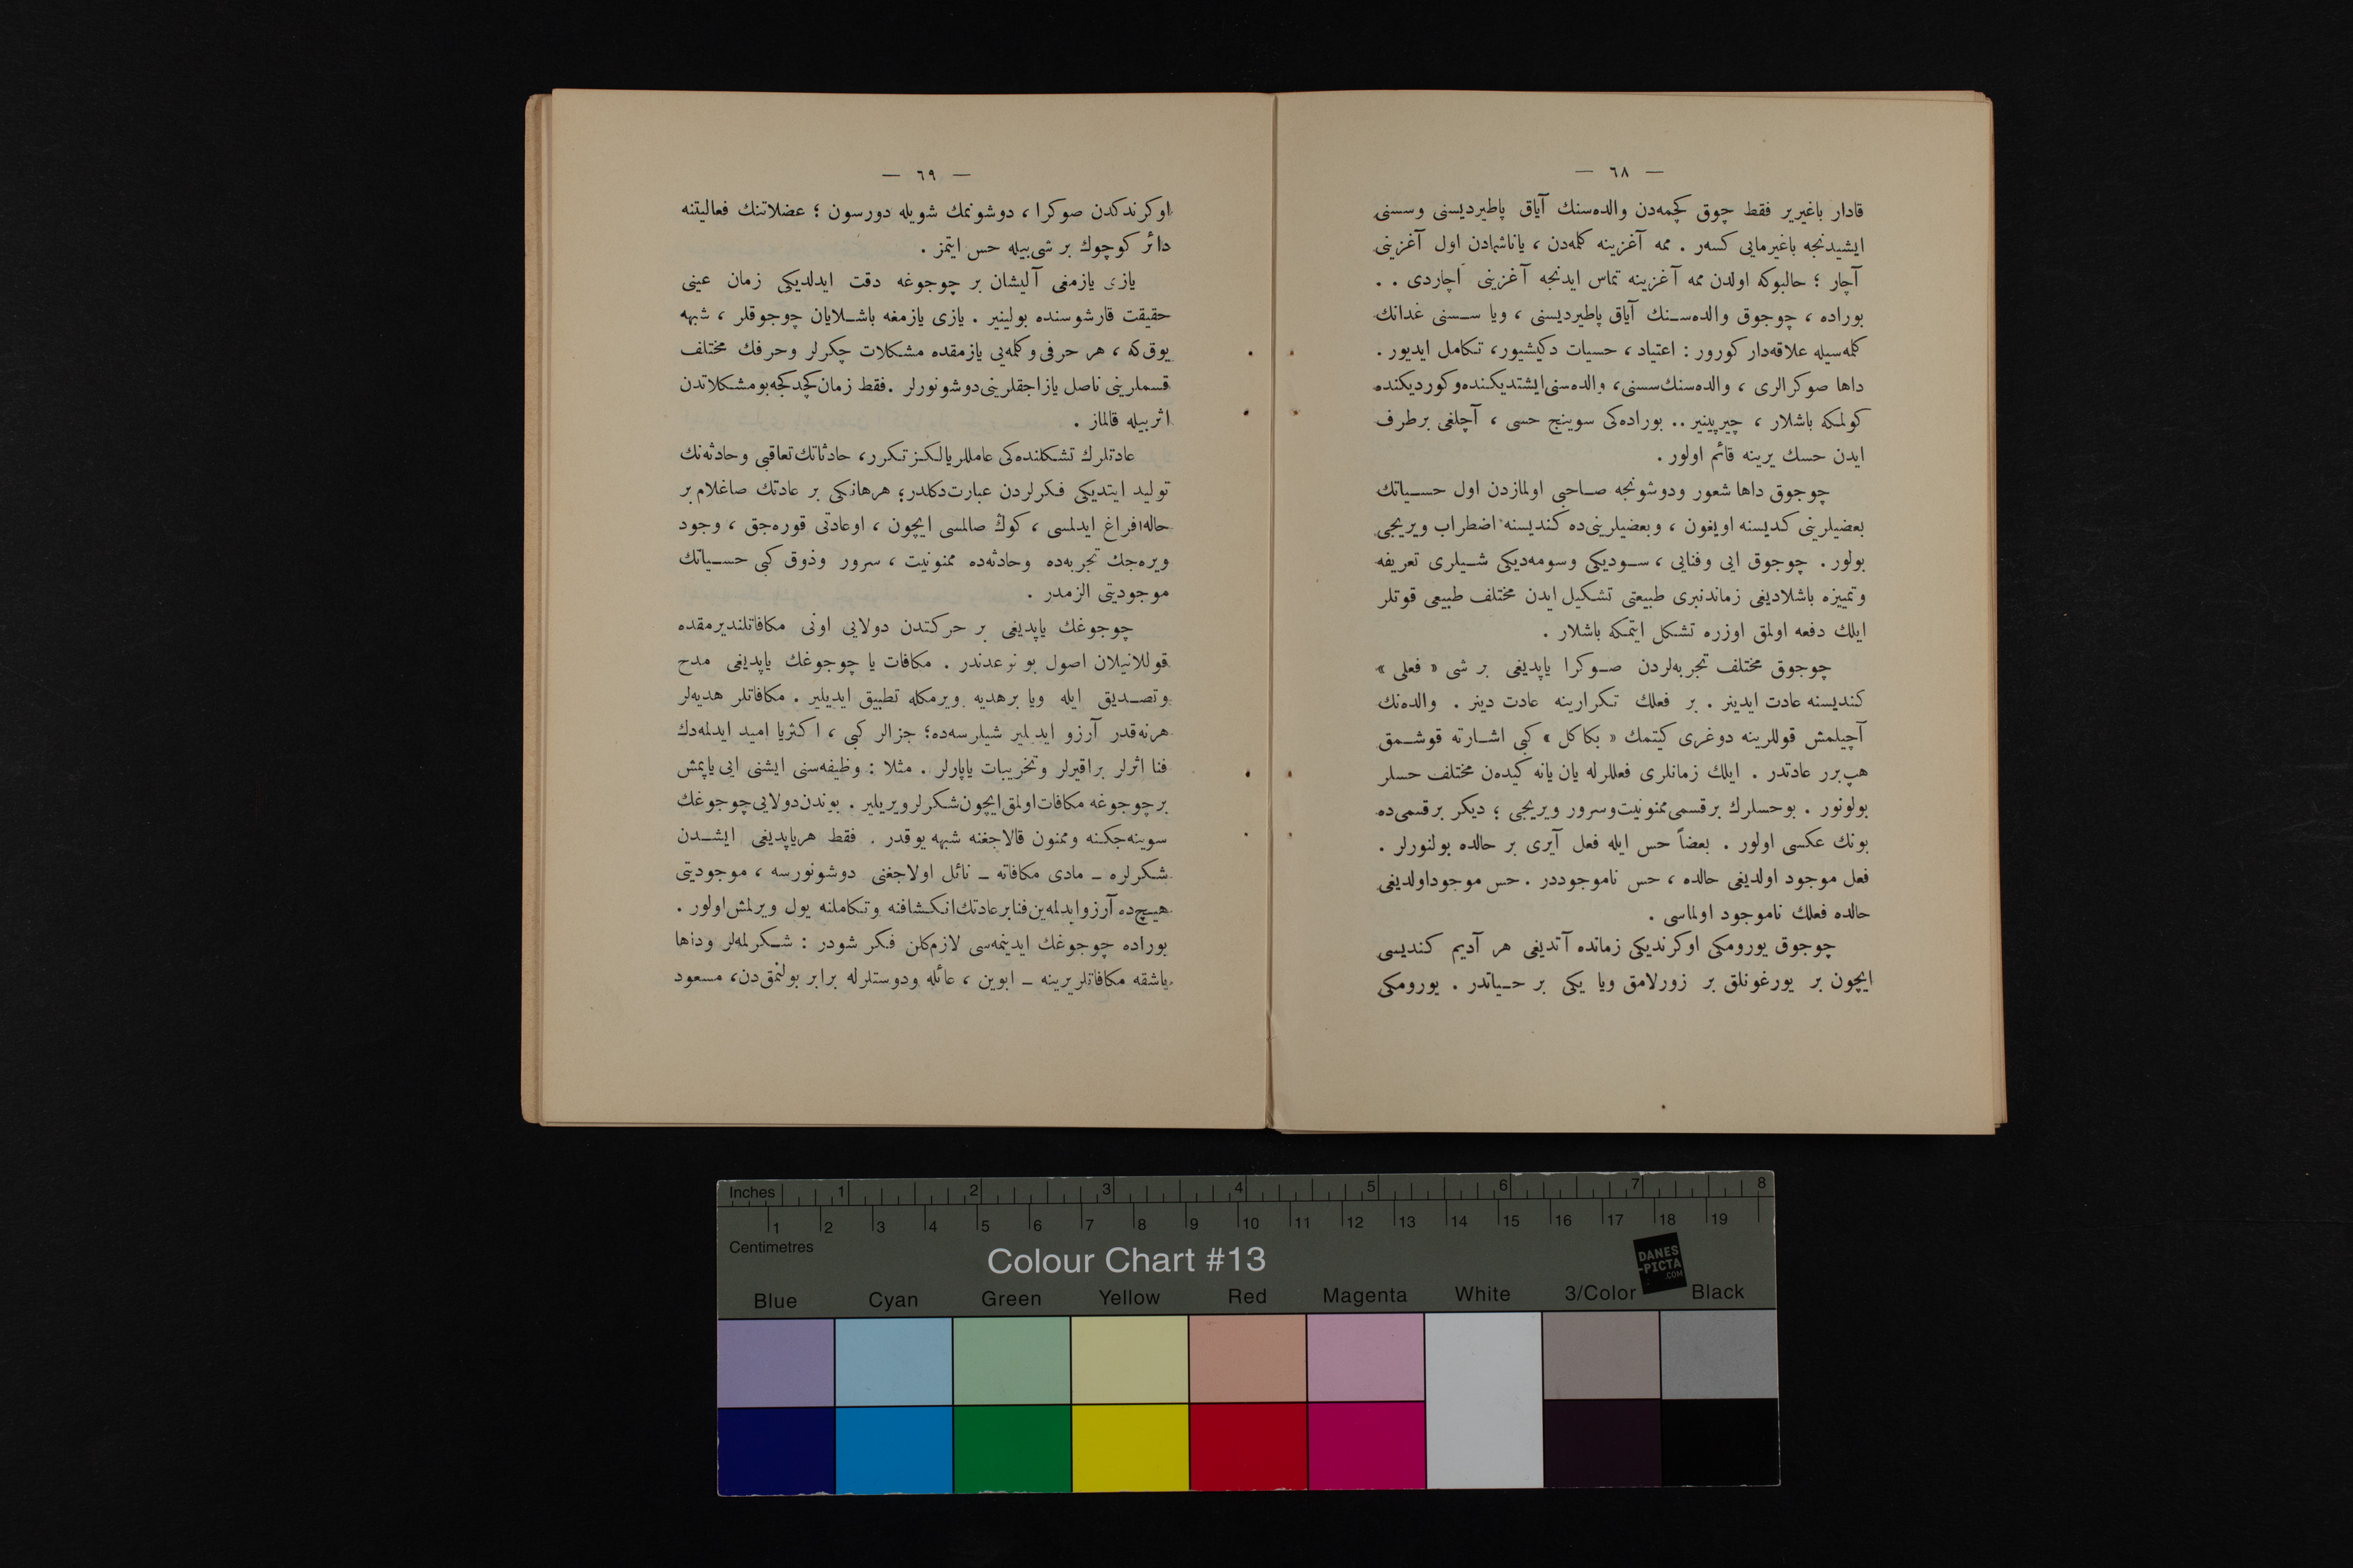 — ٦٨ —
قادار باغیریر فقط چوق كچمه‌دن والده‌سنك آیاق پاطیردیسنی وسسنی
ایشیدنجه باغیرمایی كسه‌ر . ممه آغزینه كلمه‌دن ، یاناشمادن اول آغزینی
آچار ؛ حالبوكه اولدن ممه آغزینه تماس ایدنجه آغزینی آچاردی . .
بوراده ، چوجوق والده‌سنك آیاق پاطیردیسنی ، ویا سسنی غدانك
كلمه‌سیله علاقه‌دار كورور : اعتیاد ، حسیات دكیشیور، تكامل ایدیور .
داها صوكرالری ، والده‌سنك سسنی، والده‌سنی ایشتدیكنده وكوردیكنده
كولمكه باشلار ، چیرپینیر .. بوراده‌كی سوینج حسی ، آچلغی برطرف
ایدن حسك یرینه قائم اولور .
چوجوق داها شعور ودوشونجه صاحبی اولمازدن اول حسیاتك
بعضیلرینی كدیسنه اویغون ، وبعضیلرینی‌ده كندیسنه اضطراب ویریجی
بولور . چوجوق ایی وفنایی ، سودیكی وسومه‌دیكی شیلری تعریفه
وتمییزه باشلادیغی زماندنبری طبیعتی تشكیل ایدن مختلف طبیعی قوتلر
ایلك دفعه اولمق اوزره تشكل ایتمكه باشلار .
چوجوق مختلف تجربه‌لردن صوكرا یاپدیغی بر شی « فعلی »
كندیسنه عادت ایدینر . بر فعلك تكرارینه عادت دینر . والده‌نك
آچیلمش قوللرینه دوغری كیتمك « بكاكل » كبی اشارته قوشمق
هپ برر عادتدر . ایلك زمانلری فعللرله یان یانه كیدن مختلف حسلر
بولونور . بوحسلرك برقسمی ممنونیت وسرور ویریجی ؛ دیكر برقسمی‌ده
بونك عكسی اولور . بعضاً حس ایله فعل آیری بر حالده بولنورلر .
فعل موجود اولدیغی حالده ، حس ناموجوددر . حس موجوداولدیغی
حالده فعلك ناموجود اولماسی .
چوجوق یورومكی اوكرندیكی زمانده آتدیغی هر آدیم كندیسی
ایچون بر یورغونلق بر زورلامق ویا یكی بر حسیاتدر . یورومكی
— ٦٩ —
اوكرندكدن صوكرا ، دوشونمك شویله دورسون ؛ عضلاتنك فعالیتنه
دائر كوچوك بر شی بیله حس ایتمز .
یازی یازمغی آلیشان بر چوجوغه دقت ایدلدیكی زمان عینی
حقیقت قارشوسنده بولینیر . یازی یازمغه باشلایان چوجوقلر ، شبهه
یوق‌كه ، هر حرفی وكلمه‌یی یازمقده مشكلات چكرلر وحرفك مختلف
قسملرینی ناصل یازاجقلرینی دوشونورلر . فقط زمان كچدكجه بومشكلاتدن
اثربیله قالماز .
عادتلرك تشكلنده‌كی عاملر یالكز تكرر، حادثاتك تعاقبی وحادثه‌نك
تولید ایتدیكی فكرلردن عبارت دكلدر؛ هرهانكی بر عادتك صاغلام بر
حاله افراغ ایدلمسی ، كوك صالمسی ایچون ، اوعادتی قوره‌جق ، وجود
ویره‌جك تجربه‌ده وحادثه‌ده ممنونیت ، سرور وذوق كبی حسیاتك
موجودیتی الزمدر .
چوجوغك یاپدیغی بر حركتدن دولایی اونی مكافاتلندیرمقده
قوللانیلان اصول بو نوعدندر . مكافات یا چوجوغك یاپدیغی مدح
وتصدیق ایله ویا برهدیه ویرمكله تطبیق ایدیلیر . مكافاتلر هدیه‌لر
هرنه‌قدر آرزو ایدیلیر شیلرسه‌ده؛ جزالر كبی ، اكثریا امید ایدلمه‌دك
فنا اثرلر براقیرلر وتخریبات یاپارلر . مثلا : وظیفه‌سنی ایشنی ایی یاپمش
برچوجوغه مكافات اولمق ایچون شكرلر ویریلیر . بوندن دولایی چوجوغك
سوینه‌جكنه وممنون قالاجغنه شبهه یوقدر . فقط هریاپدیغی ایشدن
شكرلره ـ مادی مكافاته ـ نائل اولاجغنی دوشونورسه ، موجودیتی
هیچ‌ده آرزو ایدلمه‌ین فنابرعادتك انكشافنه وتكاملنه یول ویرلمش اولور .
بوراده چوجوغك ایدینمه‌سی لازم‌كلن فكر شودر : شكرلمه‌لر وداها
باشقه مكافاتلریرینه ـ ابوین ، عائله ودوستلرله برابر بولنمق‌دن، مسعود
Inches 1 2 3 4 5 6 7 8
1 2 3 4 5 6 7 8 9 10 11 12 13 14 15 16 17 18 19
Centimetres
Colour Chart #13
DANES
-PICTA
.COM
Blue Cyan Green Yellow Red Magenta White 3/Color Black